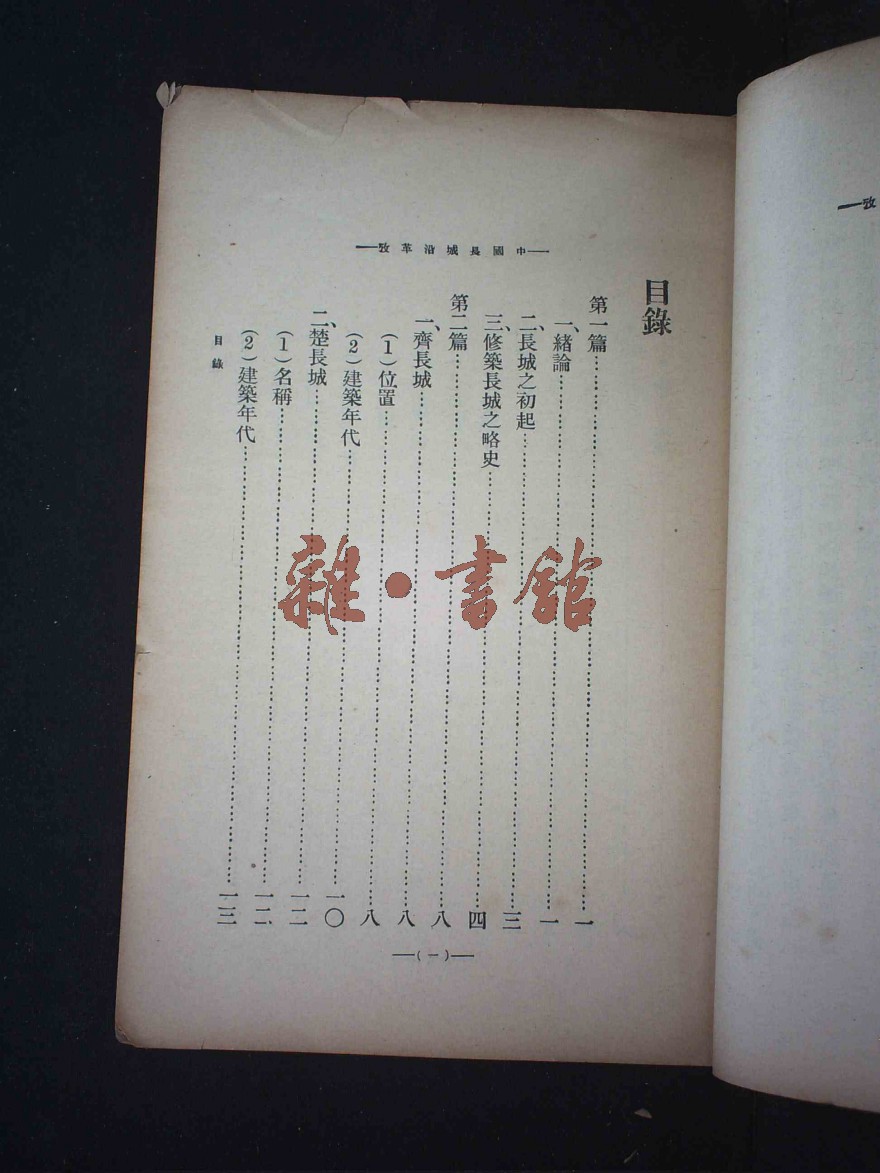 —中國長城沿革攷—
目錄
第一篇……一
一、緒論……一
二、長城之初起……三
三、修築長城之略史……四
第二篇……八
一、齊長城……八
(1)位置……八
(2)建築年代……一〇
二、楚長城……一二
(1)名稱……一二
(2)建築年代……一三
目錄
—(一)—
雜·書館
—攷